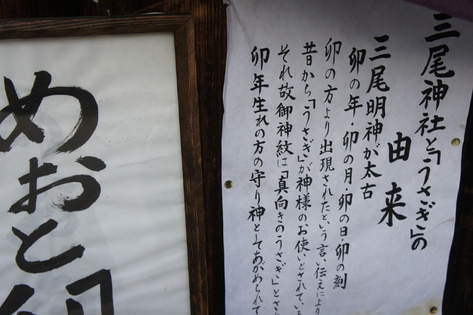 三尾神社と「うさぎ」の
由来
三尾明神が太古
卯の年・卯の月・卯の日・卯の刻
卯の方より出現されたという言い伝えにより
昔から「うさぎ」が神様のお使いとされている
それ故御神紋に「真向きのうさぎ」とさ
卯年生れの方の守り神としてあがめられて
めおと